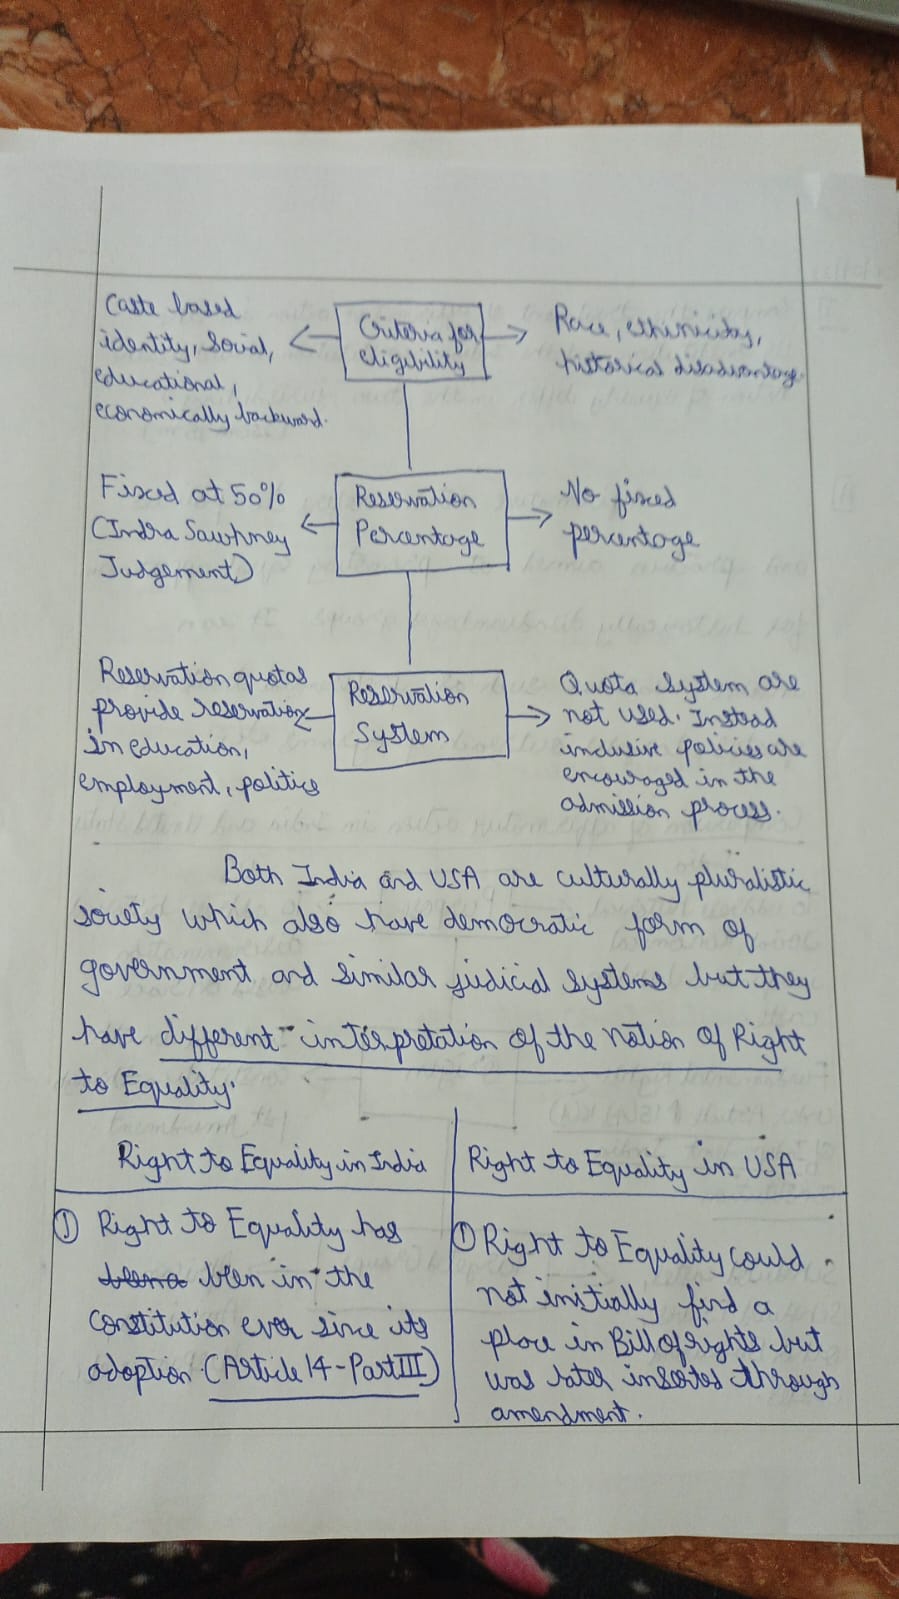 Caste based
identity, Social,
educational,
economically backward.
Criteria for
eligibility
Race, ethinicity,
historical disadvantage
Fixed at 50%
(Indra Sawhney
Judgement)
Reservation
Percentage
No fixed
percentage
Reservation quotas
provide reservation
in education,
employment, politics
Reservation
System
Quota system are
not used. Instead
inclusive policies are
encouraged in the
admission process.
Both India and USA are culturally pluralistic
society which also have democratic form of
government and similar judicial systems but they
have different interpretation of the notion of Right
to Equality.
Right to Equality in India
① Right to Equality has
been in the
constitution ever since its
adoption (Article 14 - Part III)
Right to Equality in USA
① Right to Equality could
not initially find a
place in Bill of rights but
was later inserted through
amendment.